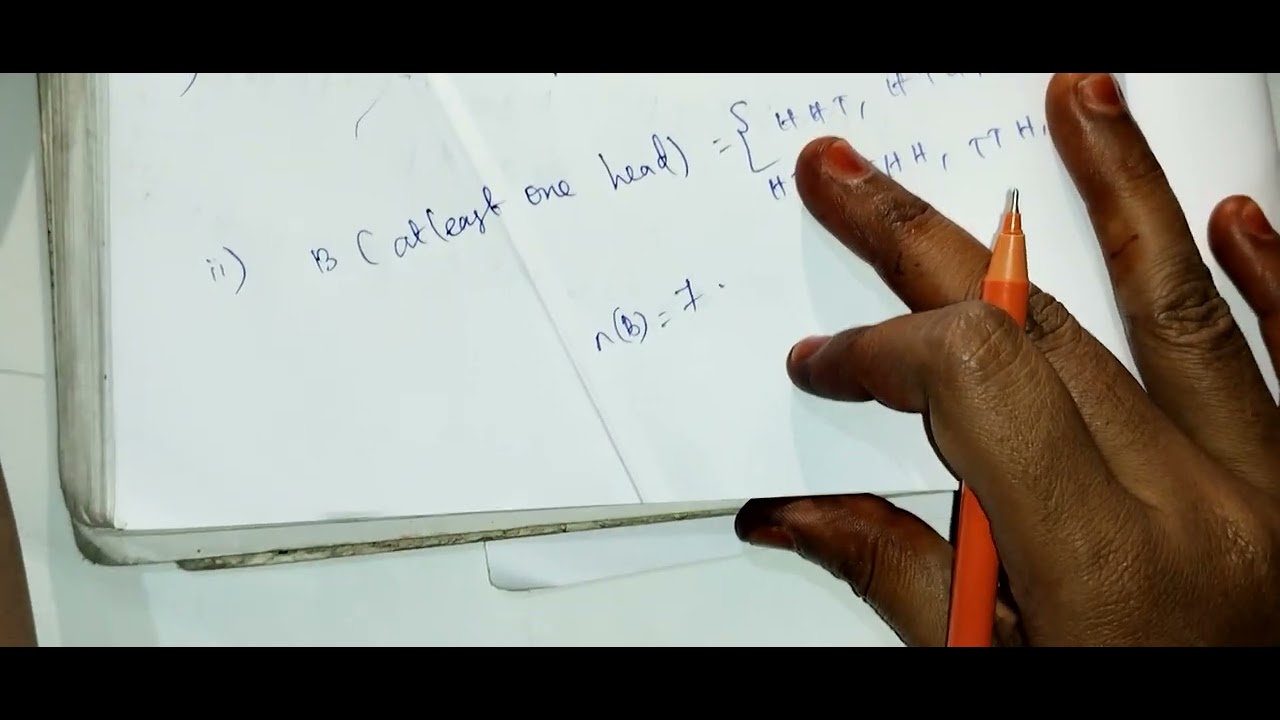 ii) B (atleast one head) = { HHT,
HH, TTH,
n(B) = 7.